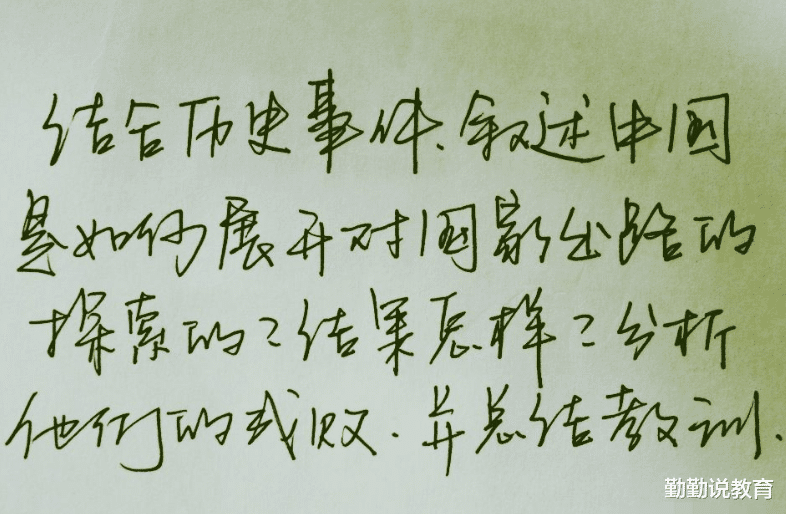 结合历史事件、叙述中国
是如何展开对国家出路的
探索的?结果怎样?分析
他们的成败.并总结教训.
勤勤说教育